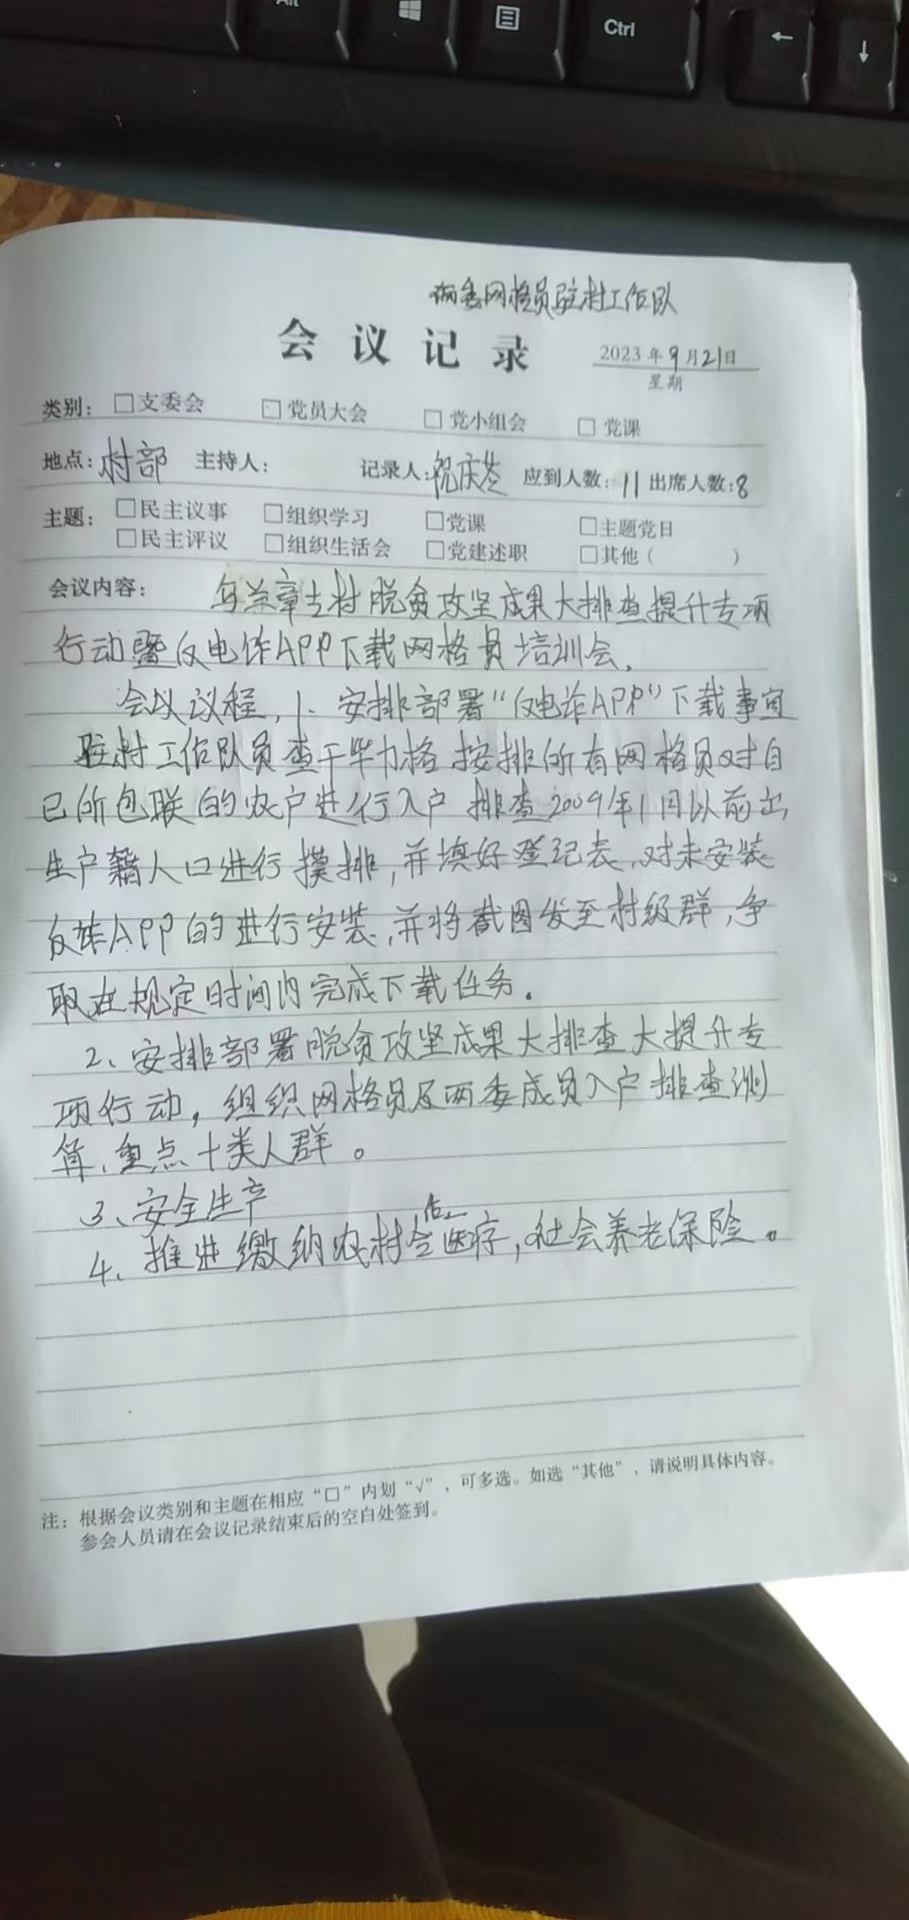 Alt
Ctrl
← ↓
两委网格员驻村工作队
会议记录
2023年9月21日
星期
类别：□支委会 □党员大会 □党小组会 □党课
地点：村部 主持人： 记录人：倪庆苍 应到人数：11 出席人数：8
主题：□民主议事 □组织学习 □党课 □主题党日
□民主评议 □组织生活会 □党建述职 □其他（ ）
会议内容： 乌兰章古村脱贫攻坚成果大排查提升专项
行动暨反电诈APP下载网格员培训会.
会议议程,1、安排部署“反电诈APP”下载事宜
驻村工作队员查干毕力格按排所有网格员对自
己所包联的农户进行入户排查2009年1月以前出
生户籍人口进行摸排,并填好登记表,对未安装
反诈APP的进行安装,并将截图发至村级群,争
取在规定时间内完成下载任务.
2、安排部署脱贫攻坚成果大排查大提升专
项行动,组织网格员及两委成员入户排查测
算、重点十类人群。
3、安全生产
4、推进缴纳农村合作医疗,社会养老保险。
注：根据会议类别和主题在相应“□”内划“√”，可多选。如选“其他”，请说明具体内容。
参会人员请在会议记录结束后的空白处签到。